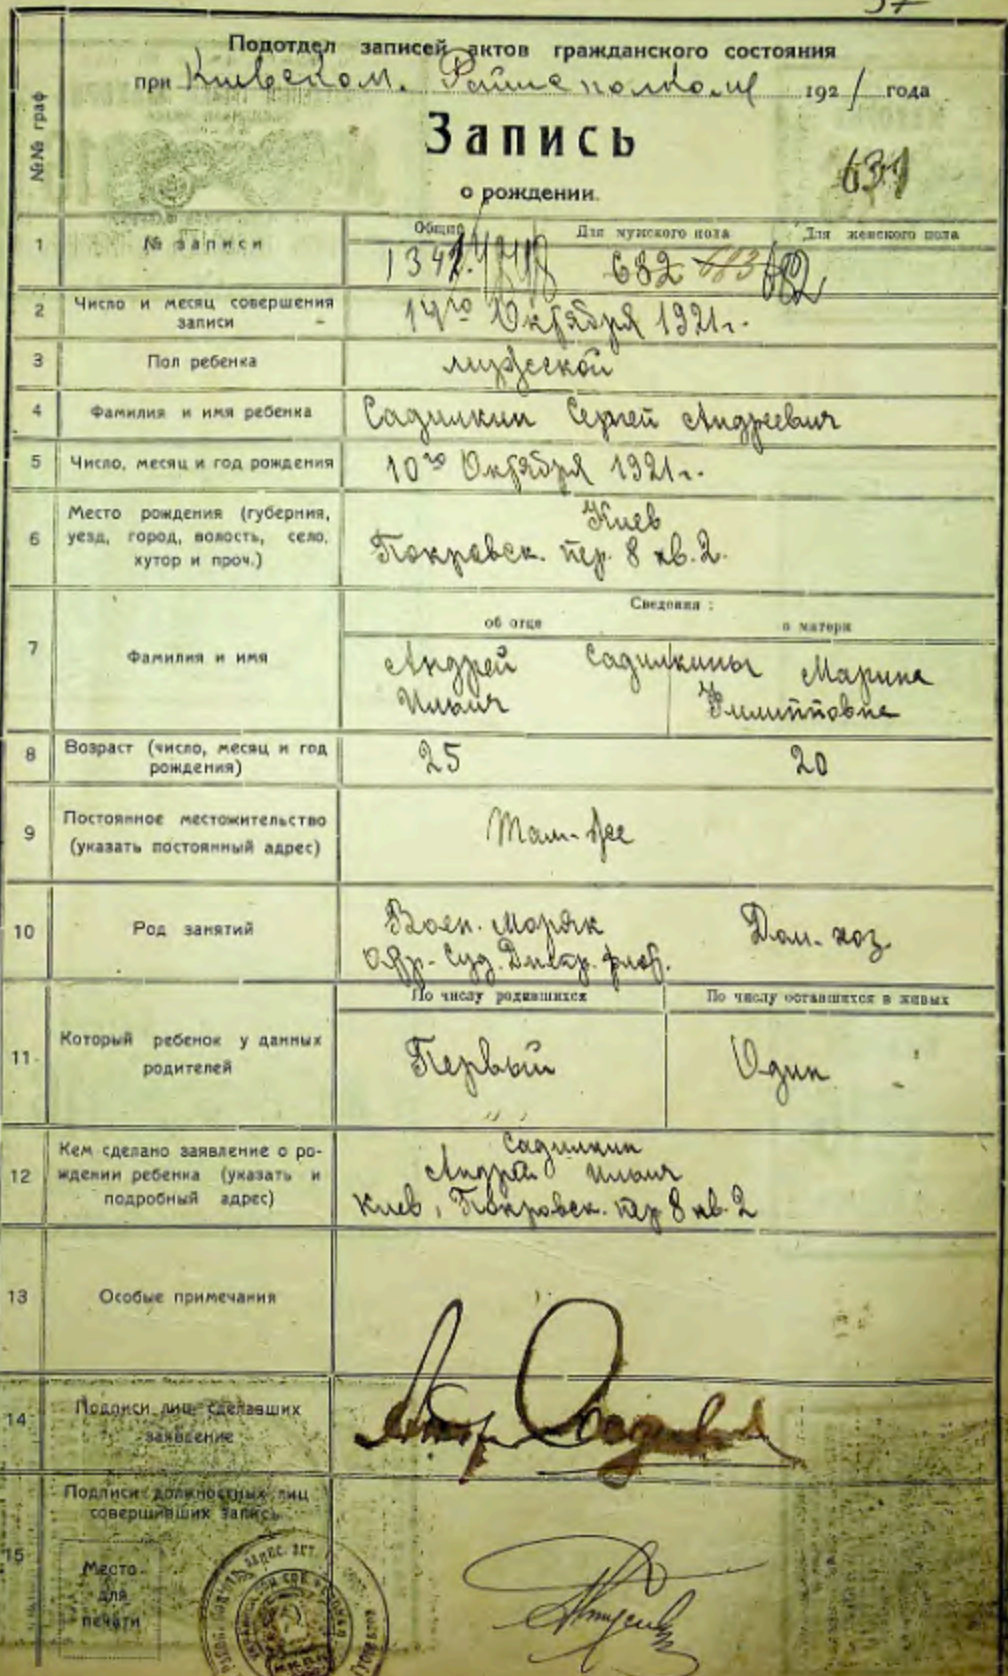 37
Подотдел записей актов гражданского состояния
при Киевском. 1921 года
Запись
о рождении.
631
№№ граф
1 № записи
Общий Для мужского пола Для женского пола
1342 682 683 682
2 Число и месяц совершения записи
14го Октября 1921 г.
3 Пол ребенка
мужеской
4 Фамилия и имя ребенка
Садилкин Сергей Андреевич
5 Число, месяц и год рождения
10го Октября 1921 г.
6 Место рождения (губерния,
уезд, город, волость, село,
хутор и проч.)
Киев
Покровск. пер. 8 кв. 2.
Сведения:
об отце о матери
7 Фамилия и имя
Андрей Садилкины Марина
Ильич Филипповна
8 Возраст (число, месяц и год
рождения)
25 20
9 Постоянное местожительство
(указать постоянный адрес)
Там-же
10 Род занятий
Воен. Моряк Дом. хоз.
Суд. Днепр. флот.
По числу родившихся По числу оставшихся в живых
11 Который ребенок у данных
родителей
Первый Один
12 Кем сделано заявление о ро-
ждении ребенка (указать и
подробный адрес)
Садилкин
Андрей Ильич
Киев, Покровск. пер 8 кв. 2
13 Особые примечания
14 Подписи лиц, сделавших
заявление
15 Подписи должностных лиц
совершивших запись
Место
для
печати